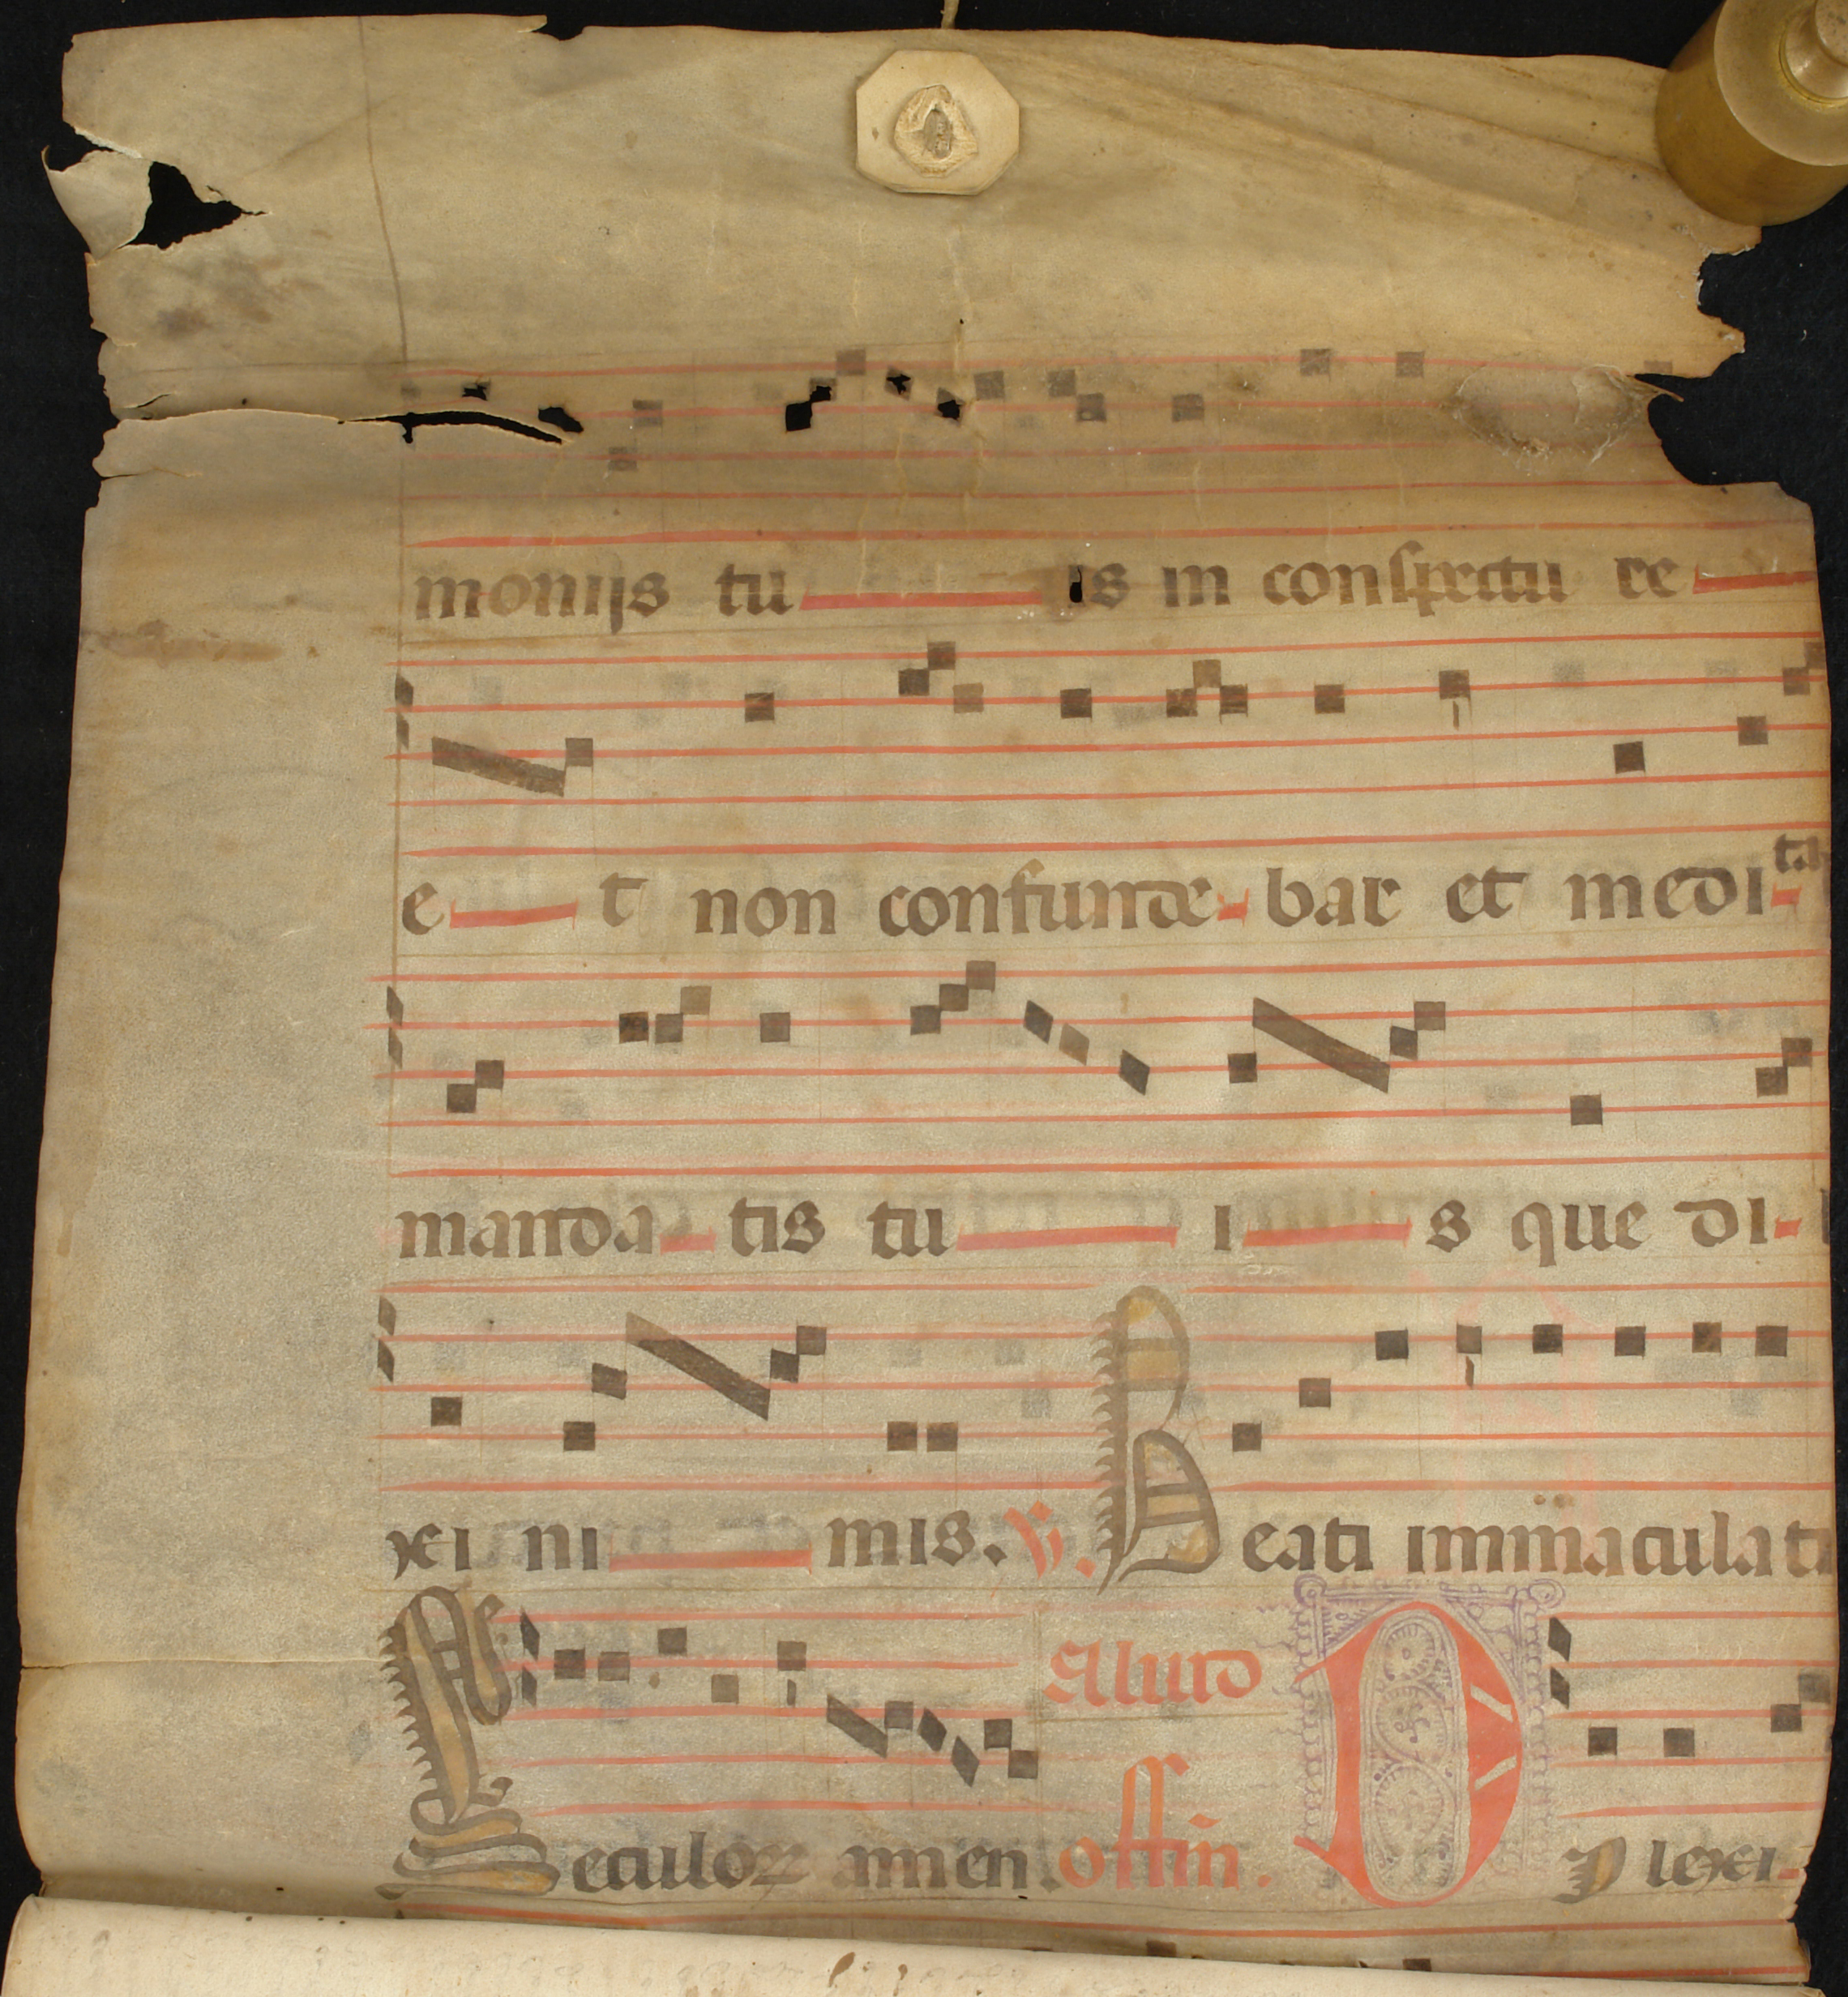 monijs tu is in conspectu re
e t non confunde bar et medi ta
manda tis tu i s que di
xi ni mis. V. Beati immaculati
Aliud
Seculorꝝ amen. offm̄. D I lexi